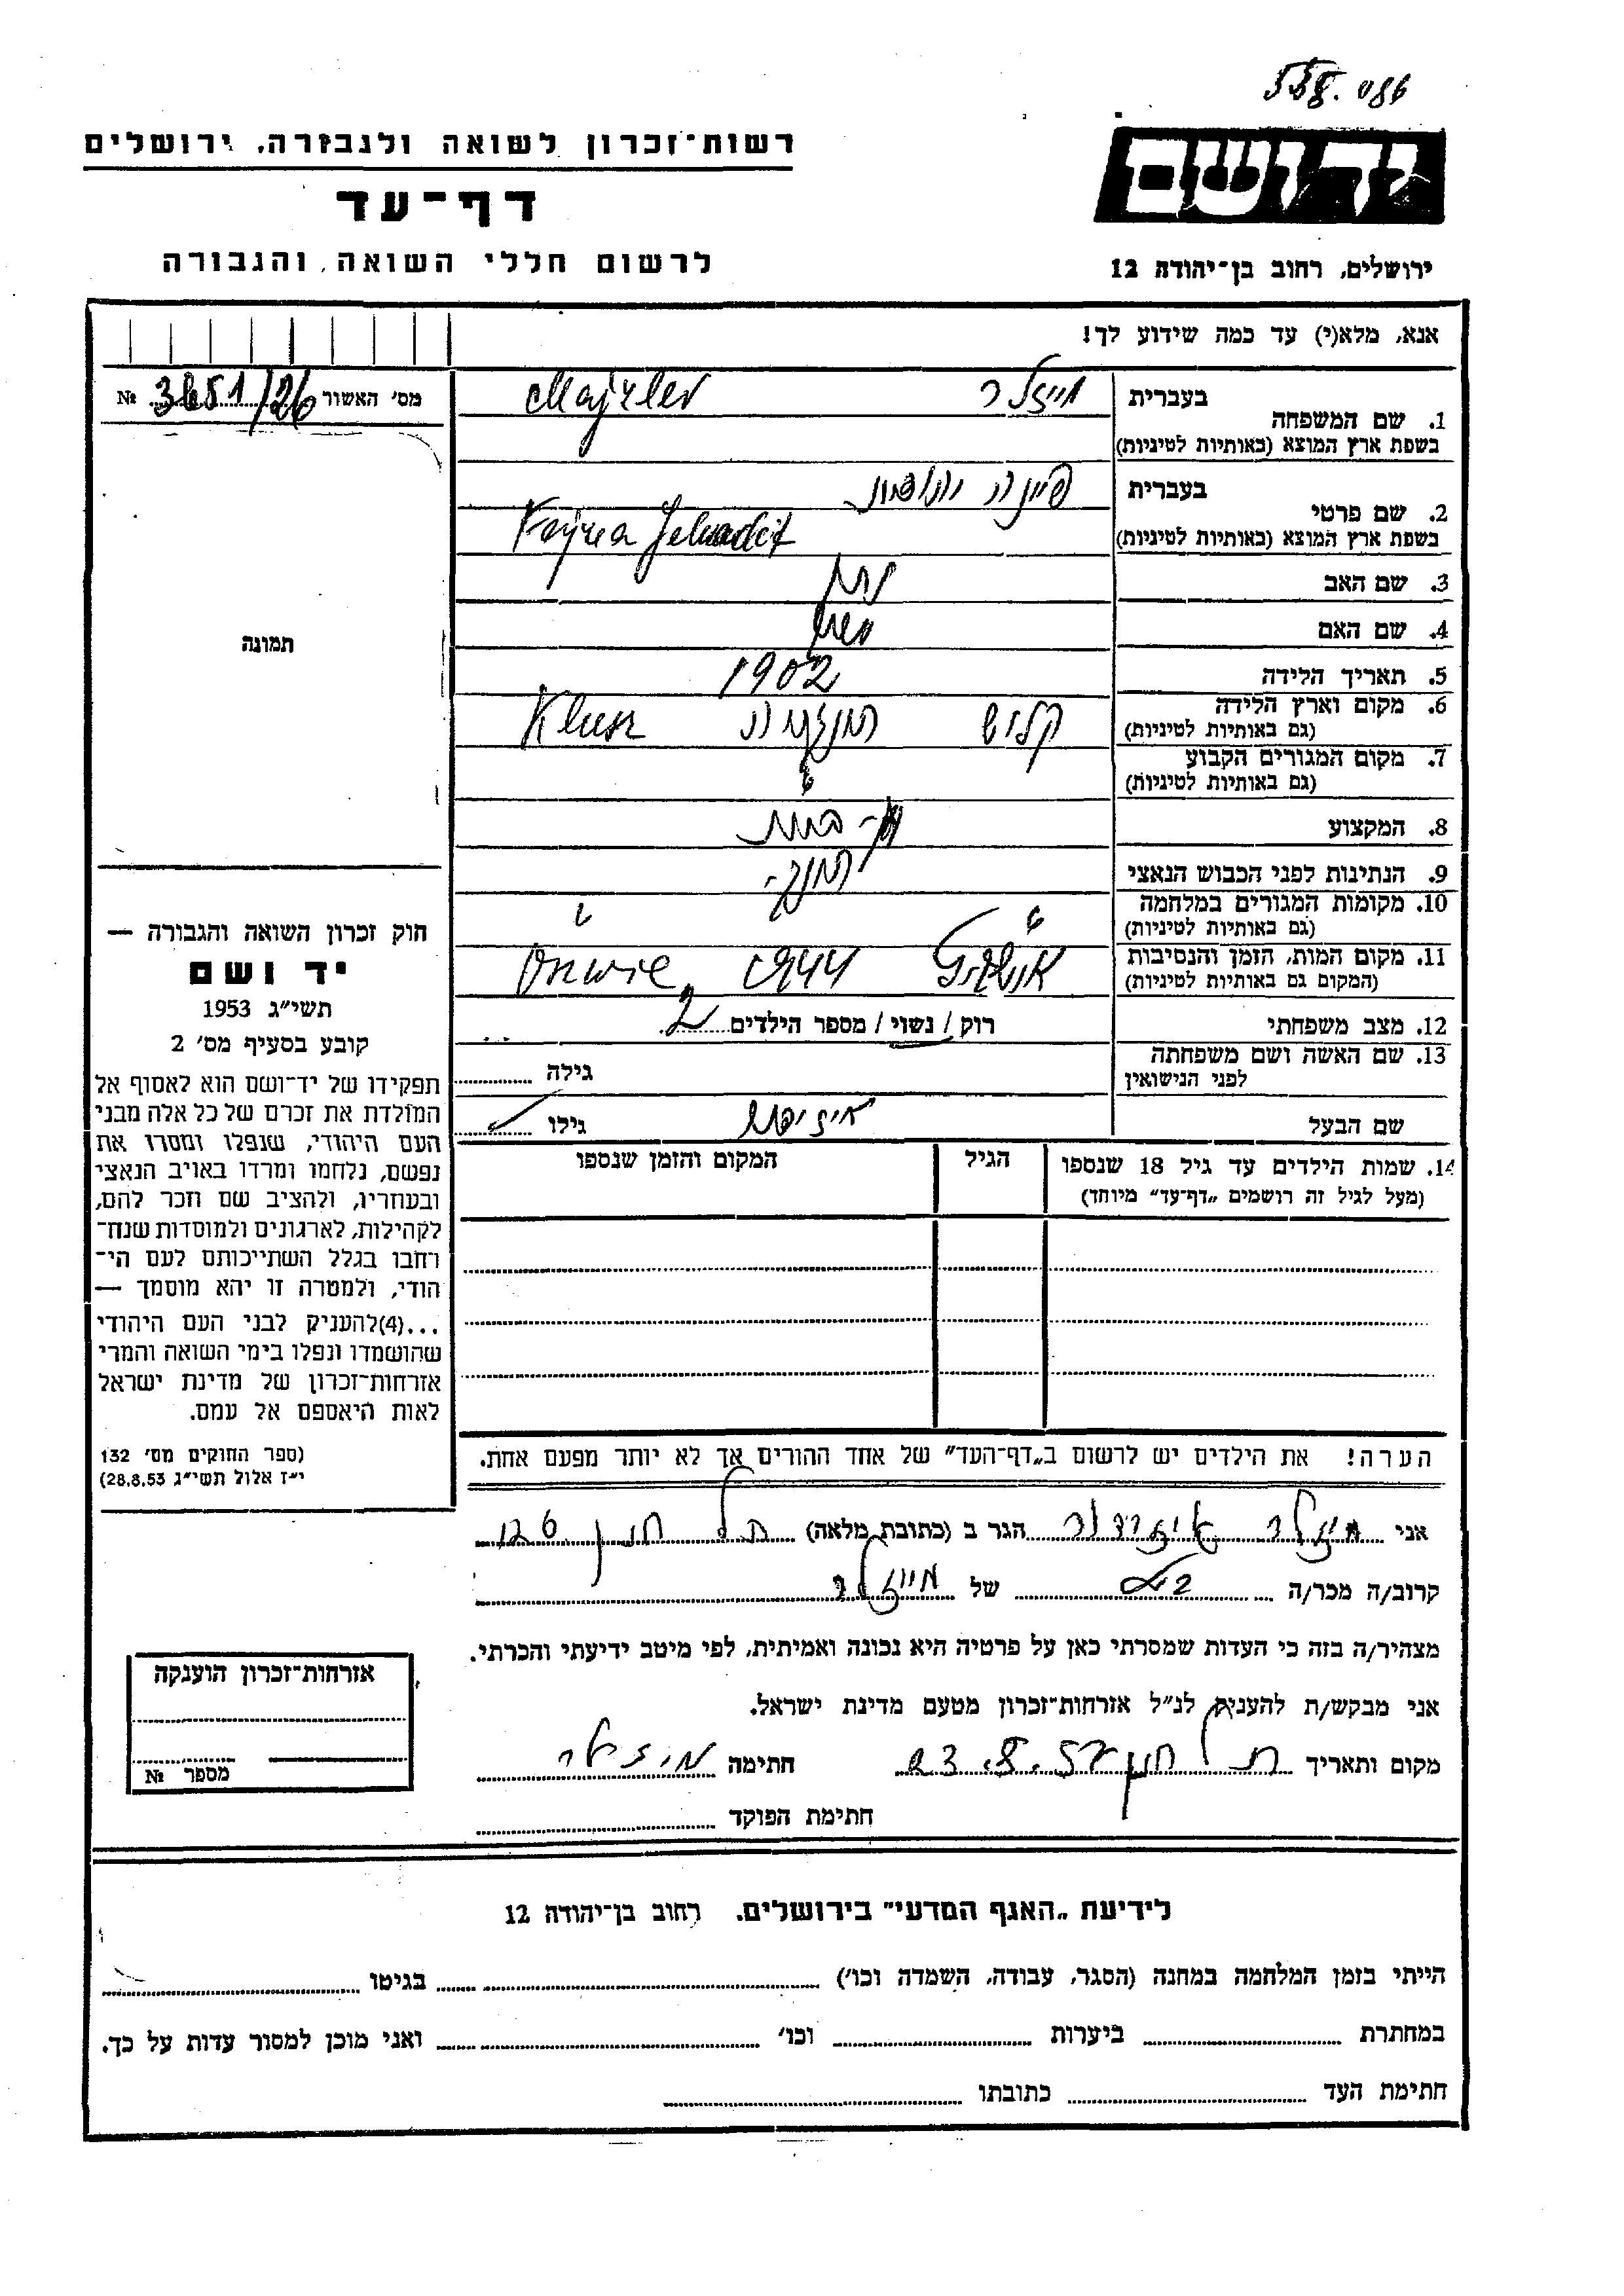 רשות־זכרון לשואה ולגבורה, ירושלים
דף־עד
לרשום חללי השואה והגבורה
ידושם
ירושלים, רחוב בן־יהודה 12
אנא, מלא(י) עד כמה שידוע לך!
מס׳ האשור № 3651/26
תמונה
חוק זכרון השואה והגבורה —
יד ושם
תשי״ג 1953
קובע בסעיף מס׳ 2
תפקידו של יד־ושם הוא לאסוף אל
המולדת את זכרם של כל אלה מבני
העם היהודי, שנפלו ומסרו את
נפשם, נלחמו ומרדו באויב הנאצי
ובעוזריו, ולהציב שם וזכר להם,
לקהילות, לארגונים ולמוסדות שנח־
רבו בגלל השתייכותם לעם הי־
הודי, ולמטרה זו יהא מוסמך —
...(4) להעניק לבני העם היהודי
שהושמדו ונפלו בימי השואה והמרי
אזרחות־זכרון של מדינת ישראל
לאות היאספם אל עמם.
(ספר החוקים מס׳ 132
י״ז אלול תשי״ג 28.8.53)
1. שם המשפחה בעברית מייזלר Majzler
בשפת ארץ המוצא (באותיות לטיניות)
2. שם פרטי בעברית
בשפת ארץ המוצא (באותיות לטיניות)
3. שם האב
4. שם האם
5. תאריך הלידה 1902
6. מקום וארץ הלידה קלוש הונגריה
(גם באותיות לטיניות)
7. מקום המגורים הקבוע
(גם באותיות לטיניות)
8. המקצוע
9. הנתינות לפני הכבוש הנאצי הונג׳
10. מקומות המגורים במלחמה
(גם באותיות לטיניות)
11. מקום המות, הזמן והנסיבות 1944
(המקום גם באותיות לטיניות)
12. מצב משפחתי רוק / נשוי / מספר הילדים 2
13. שם האשה ושם משפחתה
לפני הנישואין גילה
שם הבעל גילו
14. שמות הילדים עד גיל 18 שנספו הגיל המקום והזמן שנספו
(מעל לגיל זה רושמים „דף־עד״ מיוחד)
הערה! את הילדים יש לרשום ב„דף־העד״ של אחד ההורים אך לא יותר מפעם אחת.
אני הגר ב (כתובת מלאה) תל חנן
קרוב/ה מכר/ה של מייזלר
מצהיר/ה בזה כי העדות שמסרתי כאן על פרטיה היא נכונה ואמיתית, לפי מיטב ידיעתי והכרתי.
אני מבקש/ת להעניק לנ״ל אזרחות־זכרון מטעם מדינת ישראל.
מקום ותאריך תל חנן 23.8.57 חתימה
חתימת הפוקד
אזרחות־זכרון הוענקה
מספר №
לידיעת „האגף המדעי״ בירושלים, רחוב בן־יהודה 12
הייתי בזמן המלחמה במחנה (הסגר, עבודה, השמדה וכו׳) בגיטו
במחתרת ביערות וכו׳ ואני מוכן למסור עדות על כך.
חתימת העד כתובתו